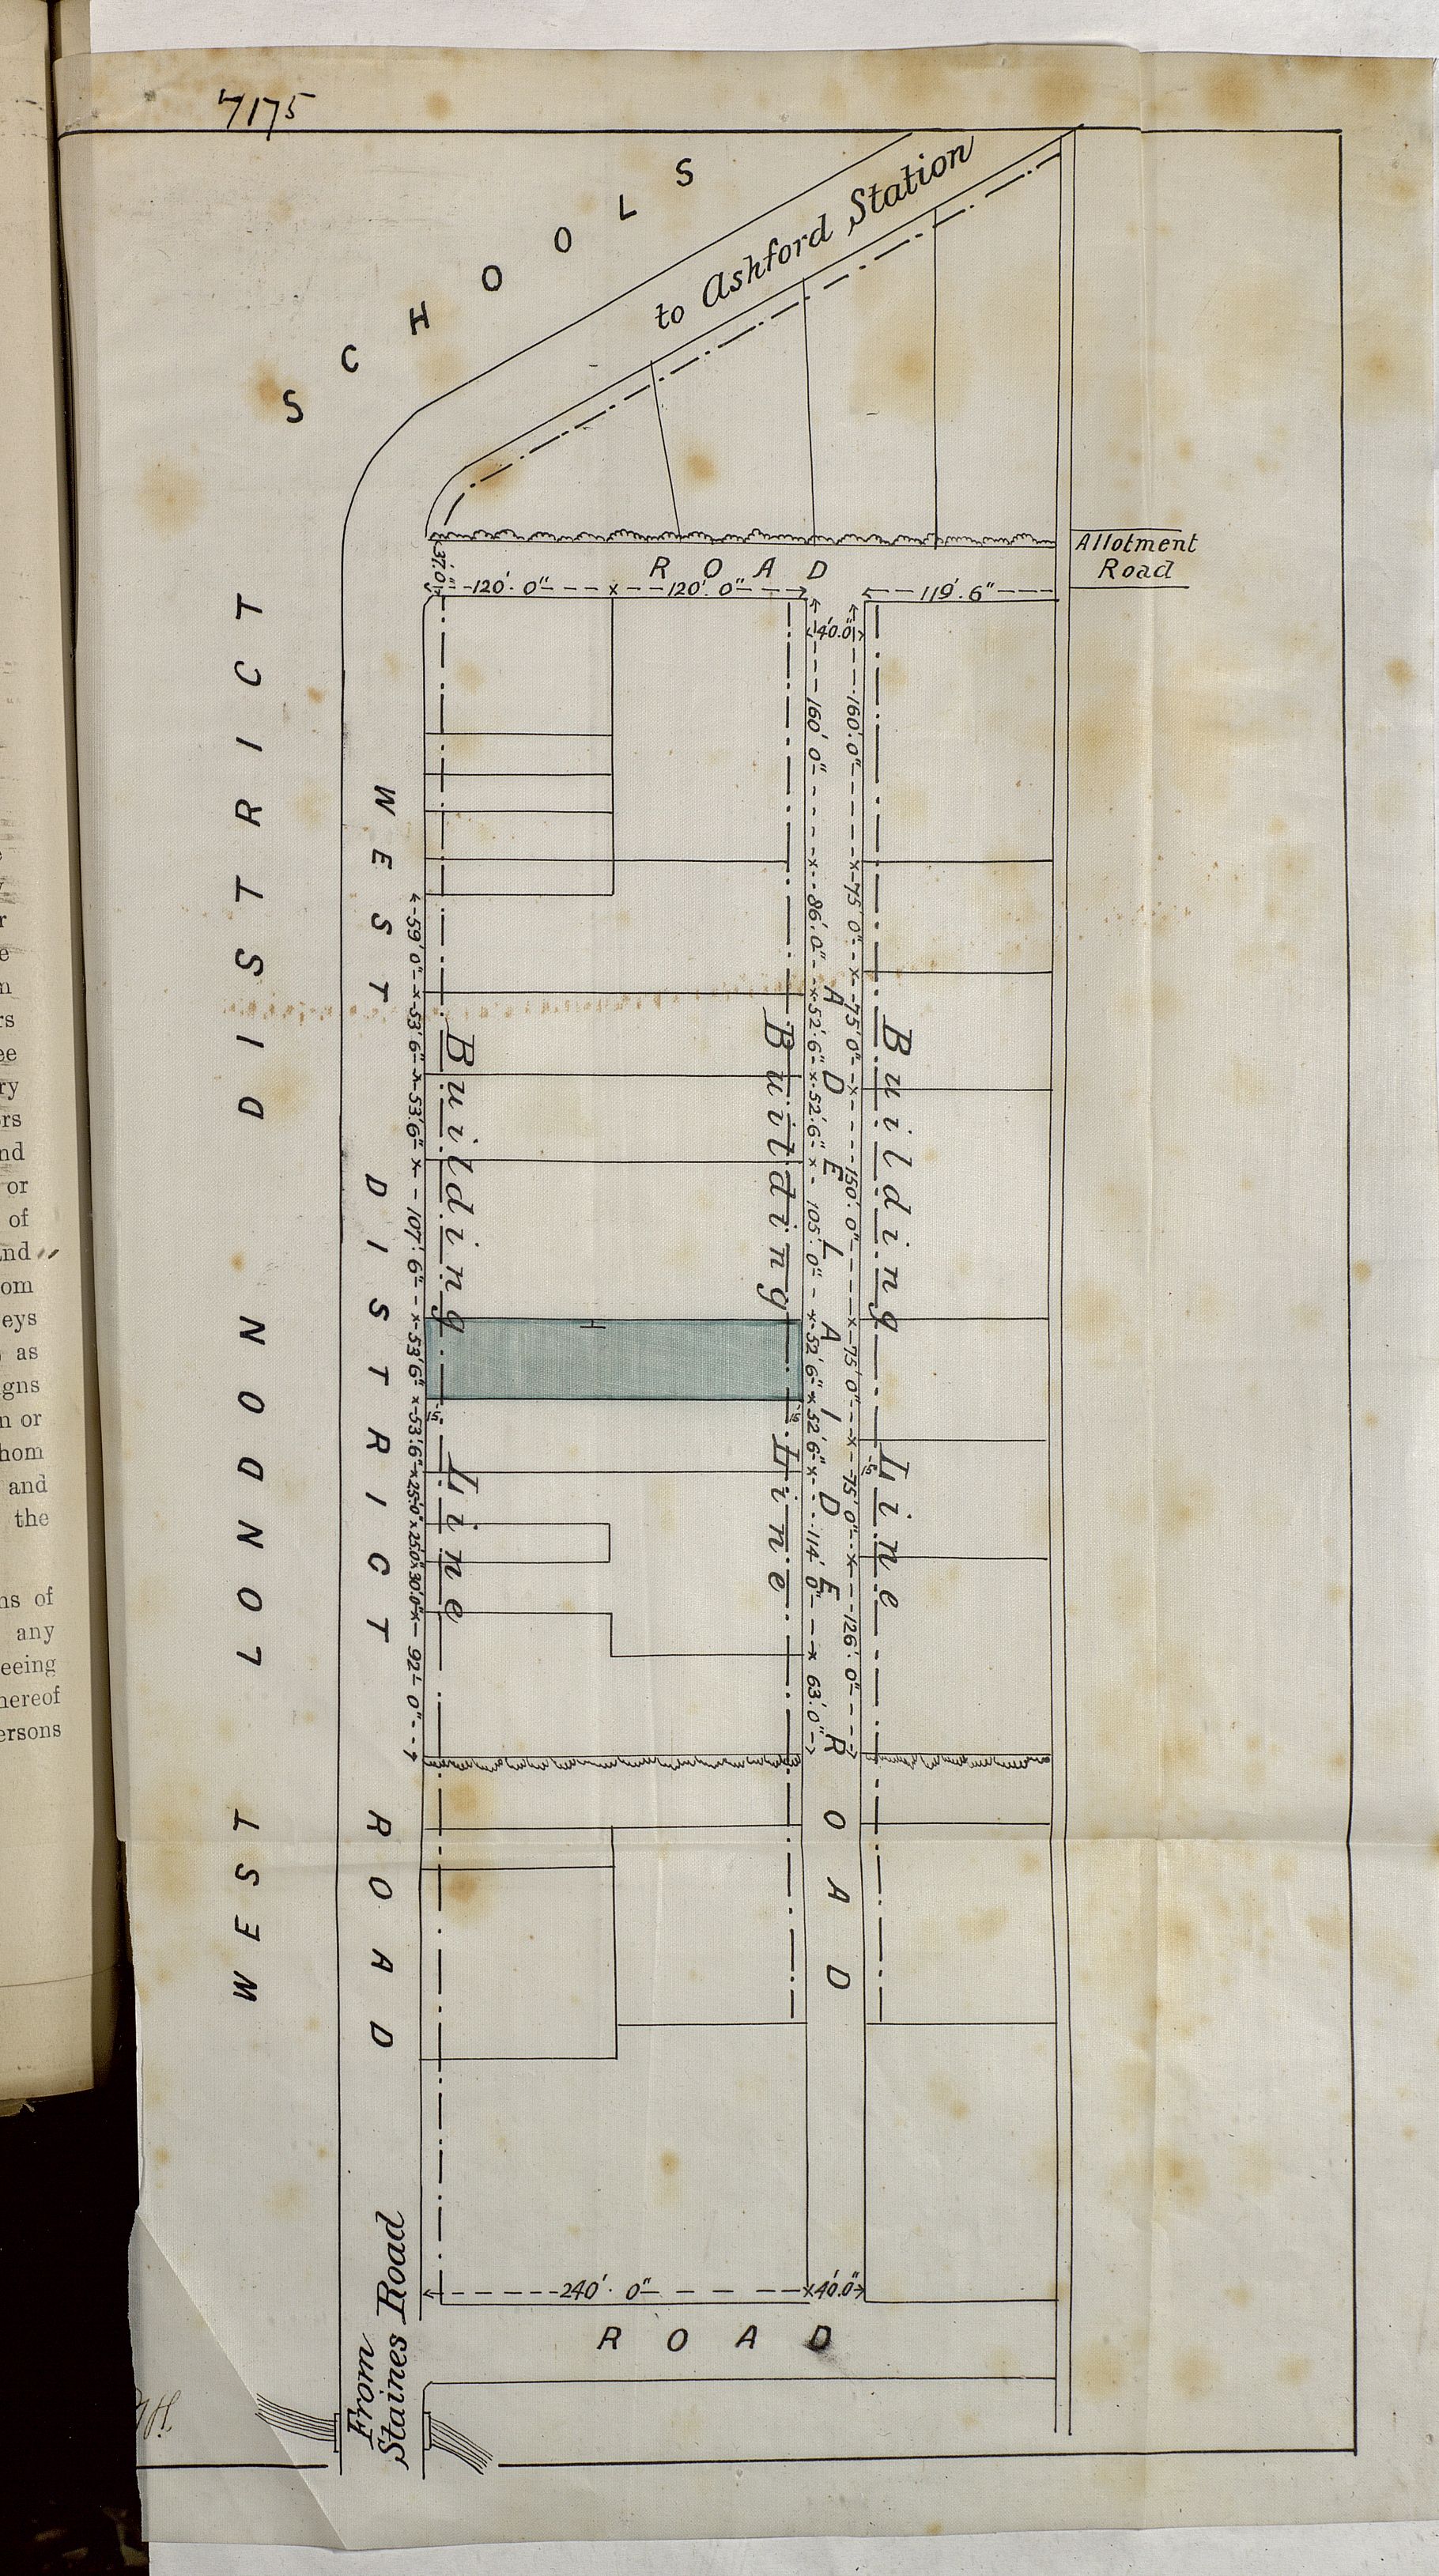 7175
SCHOOLS
to Ashford Station
Allotment
Road
ROAD
37'.0"
120'. 0" x 120'. 0"
119'. 6"
40.0"
WEST LONDON DISTRICT
WEST DISTRICT ROAD
59'.0" x 53'.6" x 53'.6" x 107'.6" x 53'.6" x 53'.6" x 25.0" x 25.0" x 30'.0" x 92'. 0"
Building Line
Building Line
160'. 0" x 86'.0" x 52'.6" x 52'.6" x 105'.0" x 52'.6" x 52'.6" x 114'. 0" x 63'.0"
ADELAIDE ROAD
160'.0" x 75'.0" x 75'.0" x 150'.0" x 75'.0" x 75'.0" x 126'.0"
Building Line
240'. 0" x 40'.0"
ROAD
From
Staines Road
ry
ors
nd
or
of
nd
om
eys
as
igns
n or
hom
and
the
ns of
any
eeing
hereof
ersons